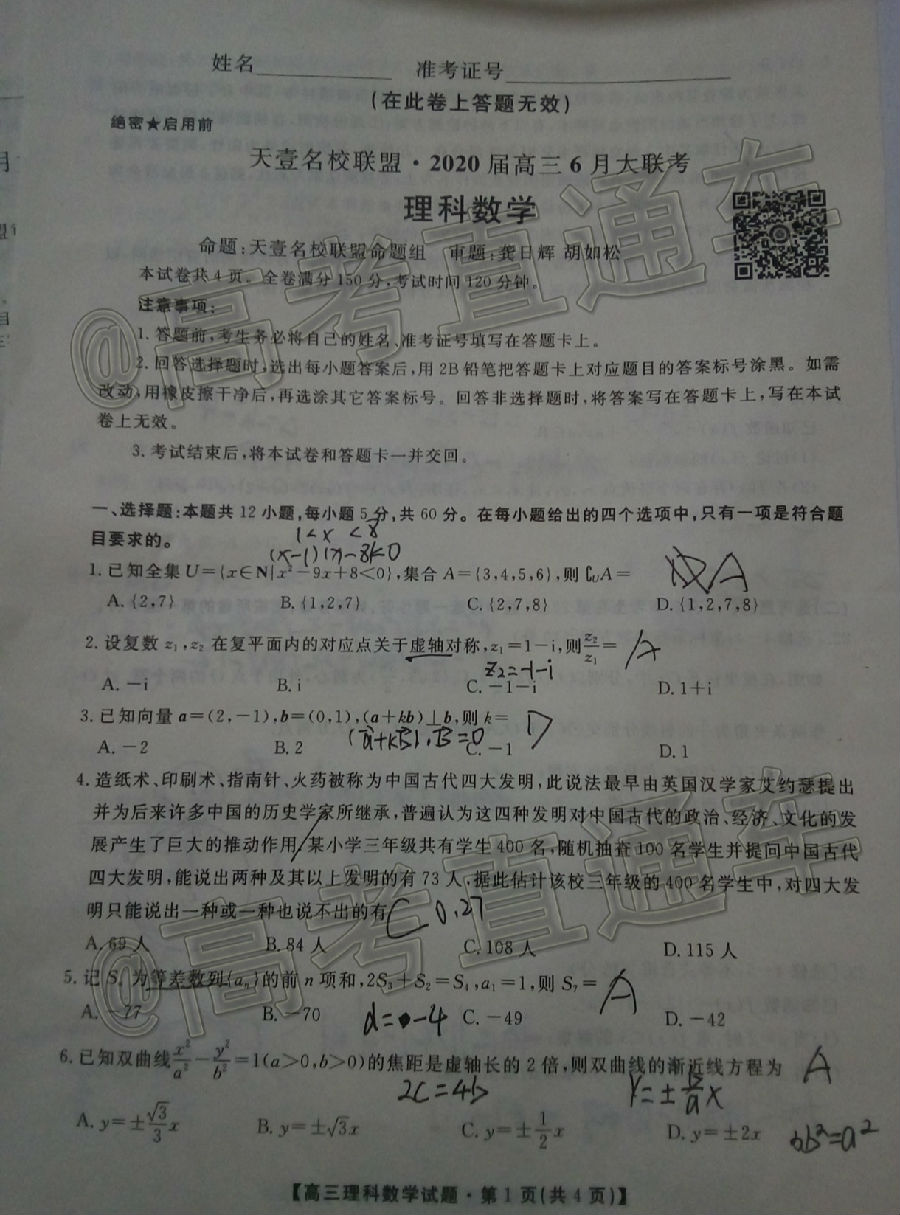 姓名____________ 准考证号____________________
(在此卷上答题无效)
绝密★启用前
天壹名校联盟·2020届高三6月大联考
理科数学
命题:天壹名校联盟命题组 审题:龚日辉 胡如松
本试卷共4页。全卷满分150分,考试时间120分钟。
注意事项:
1.答题前,考生务必将自己的姓名、准考证号填写在答题卡上。
2.回答选择题时,选出每小题答案后,用2B铅笔把答题卡上对应题目的答案标号涂黑。如需
改动,用橡皮擦干净后,再选涂其它答案标号。回答非选择题时,将答案写在答题卡上,写在本试
卷上无效。
3.考试结束后,将本试卷和答题卡一并交回。
一、选择题:本题共12小题,每小题5分,共60分。在每小题给出的四个选项中,只有一项是符合题
目要求的。
1<x<8
(x-1)(x-8)<0
1.已知全集U={x∈N|x²-9x+8<0},集合A={3,4,5,6},则∁UA= A
A.{2,7} B.{1,2,7} C.{2,7,8} D.{1,2,7,8}
2.设复数z₁,z₂在复平面内的对应点关于虚轴对称,z₁=1-i,则z₂/z₁= A
z₂=-1-i
A.-i B.i C.-1-i D.1+i
3.已知向量a=(2,-1),b=(0,1),(a+kb)⊥b,则k= D
A.-2 B.2 C.-1 D.1
(a+kb)·b=0
4.造纸术、印刷术、指南针、火药被称为中国古代四大发明,此说法最早由英国汉学家艾约瑟提出
并为后来许多中国的历史学家所继承,普遍认为这四种发明对中国古代的政治、经济、文化的发
展产生了巨大的推动作用.某小学三年级共有学生400名,随机抽查100名学生并提问中国古代
四大发明,能说出两种及其以上发明的有73人,据此估计该校三年级的400名学生中,对四大发
明只能说出一种或一种也说不出的有 C 0.27
A.69人 B.84人 C.108人 D.115人
5.记Sₙ为等差数列{aₙ}的前n项和,2S₃+S₂=S₄,a₁=1,则S₇= A
A.-77 B.-70 C.-49 D.-42
d=-4
6.已知双曲线x²/a²-y²/b²=1(a>0,b>0)的焦距是虚轴长的2倍,则双曲线的渐近线方程为 A
2c=4b y=±b/a x
A.y=±√3/3 x B.y=±√3x C.y=±1/2 x D.y=±2x
【高三理科数学试题·第1页(共4页)】
@高考直通车
@高考直通车